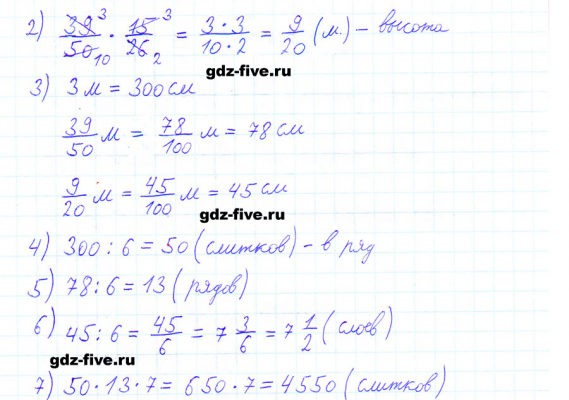 2) 39/50 · 15/26 = 3·3/10·2 = 9/20 (м) – высота
gdz-five.ru
3) 3 м = 300 см
39/50 м = 78/100 м = 78 см
9/20 м = 45/100 м = 45 см
gdz-five.ru
4) 300 : 6 = 50 (слитков) – в ряд
5) 78 : 6 = 13 (рядов)
6) 45 : 6 = 45/6 = 7 3/6 = 7 1/2 (слоев)
gdz-five.ru
7) 50 · 13 · 7 = 650 · 7 = 4550 (слитков)